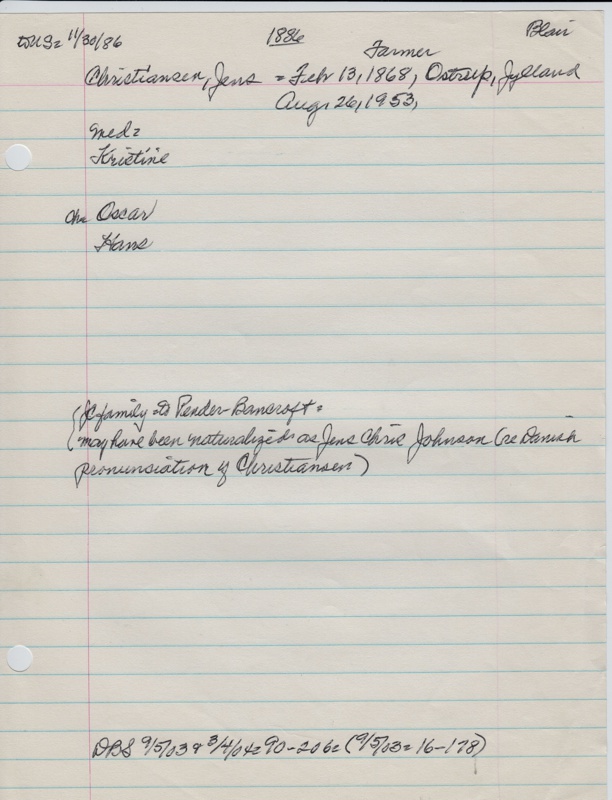 toUS= 11/30/86 1886 Blair
Farmer
Christiansen, Jens = Feb 13, 1868, Ostrup, Jylland
Aug. 26, 1953,
med=
Kristine
ch= Oscar
Hans
(JC family to Pender-Bancroft=
(may have been naturalized as Jens Chris Johnson (re Danish
pronunsiation of Christiansen)
DBS 9/5/03 & 3/4/04= 90-206= (9/5/03= 16-178)